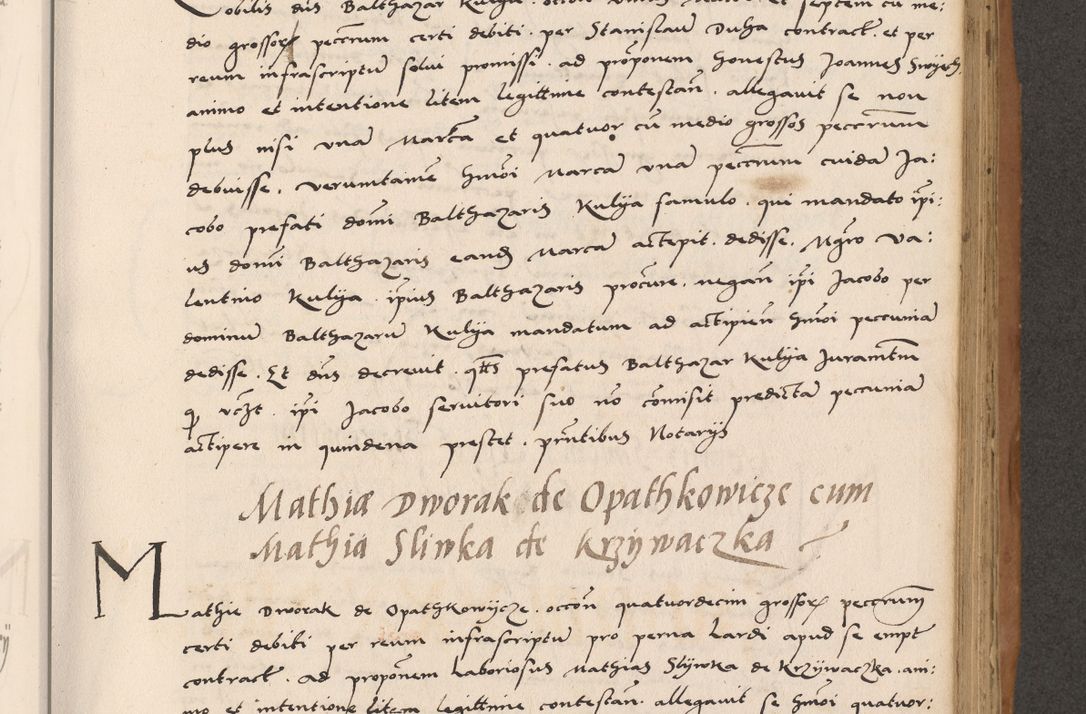 Nobilis dns Balthazar Kulyja
dio grossor peccrum certi debiti . per Stanislaum Duha contract . et per
reum infrascriptu solui promissi . ad proponem honestus Joannes
animo et intentione litem legittime contestan . allegauit se non
plus nisi vna Marca et quatuor cu medio grossos peccrum
debuisse . verumtamen hmoi Marca vna peccrum cuida Ja:
cobo prefati domi Balthazaris Kulyja famulo . qui mandato ipi:
us domi Balthazaris eand Marca acceptit . dedisse . Mgro Va:
lentino Kulyja . ipius Balthazaris procure . negan ipi Jacobo per
dominu Balthazaru Kulyja mandatum ad accipien hmoi peccunia
dedisse . Et dns decreuit . qtts prefatus Balthazar Kulyja Juramtm
q vtzt . ipi Jacobo seruitori suo no comisit predicta peccunia
accipere in quindena prestet . prntibus Notarijs
Mathiæ Dworak de Opathkowicze cum
Mathia Slivka de Krzywaczka
Mathie Dworak de Opathkowycze . occon quatuordecim grossor peccrum
certi debiti per reum infrascriptu pro perna Lardi apud se empt
contract . ad proponem Laboriosus Mathias Slywka de Krzywaczka . ani:
mo et intentione litem legittime contestan . allegauit se hmoi quatuor: